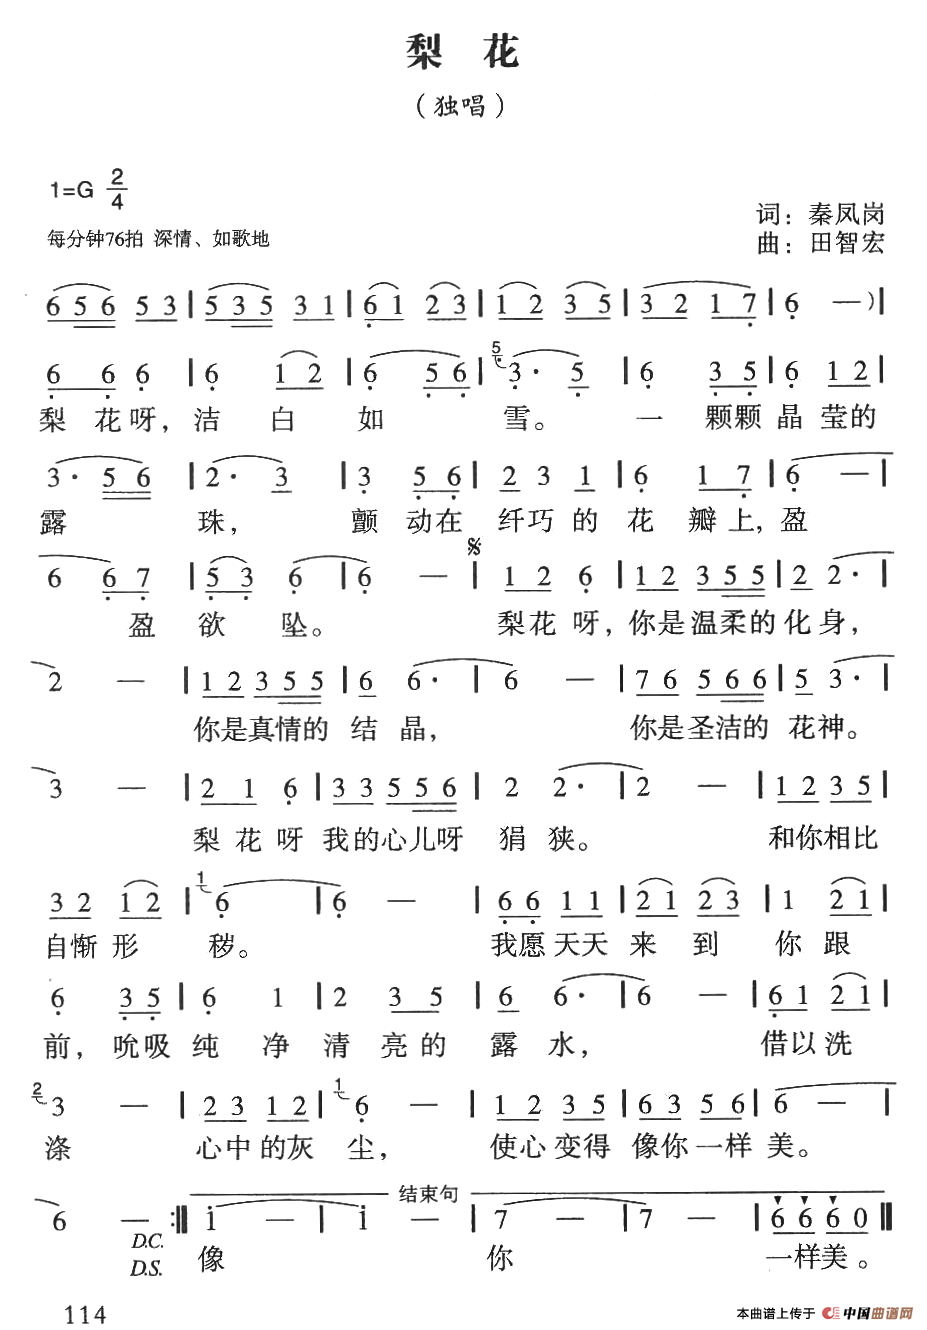 梨 花
（独唱）
1=G 2/4
词：秦凤岗
每分钟76拍 深情、如歌地
曲：田智宏
6 5 6 5 3 | 5 3 5 3 1 | 6 1 2 3 | 1 2 3 5 | 3 2 1 7 | 6 — ) |
6 6 6 | 6 1 2 | 6 5 6 | 5 3· 5 | 6 3 5 | 6 1 2 |
梨 花 呀， 洁 白 如 雪。 一 颗颗 晶 莹的
3· 5 6 | 2· 3 | 3 5 6 | 2 3 1 | 6 1 7 | 6 — |
露 珠， 颤 动在 纤巧 的 花 瓣上，盈
6 6 7 | 5 3 6 | 6 — | 1 2 6 | 1 2 3 5 5 | 2 2· |
盈 欲 坠。 梨花 呀，你是温柔的化身，
2 — | 1 2 3 5 5 | 6 6· | 6 — | 7 6 5 6 6 | 5 3· |
你是真情的 结 晶， 你是圣洁的 花神。
3 — | 2 1 6 | 3 3 5 5 6 | 2 2· | 2 — | 1 2 3 5 |
梨 花 呀 我的心儿呀 狷 狭。 和你相比
3 2 1 2 | 1 6 | 6 — | 6 6 1 1 | 2 1 2 3 | 1 2 1 |
自惭 形 秽。 我愿天天 来 到 你 跟
6 3 5 | 6 1 | 2 3 5 | 6 6· | 6 — | 6 1 2 1 |
前，吮吸 纯 净 清 亮的 露 水， 借以洗
2 3 — | 2 3 1 2 | 1 6 — | 1 2 3 5 | 6 3 5 6 | 6 — |
涤 心中的灰 尘， 使心变得 像你一样 美。
结束句
6 — :‖ i — | i — | 7 — | 7 — | 6 6 6 0 ‖
D.C.
D.S.
像 你 一样美。
114
本曲谱上传于 中国曲谱网